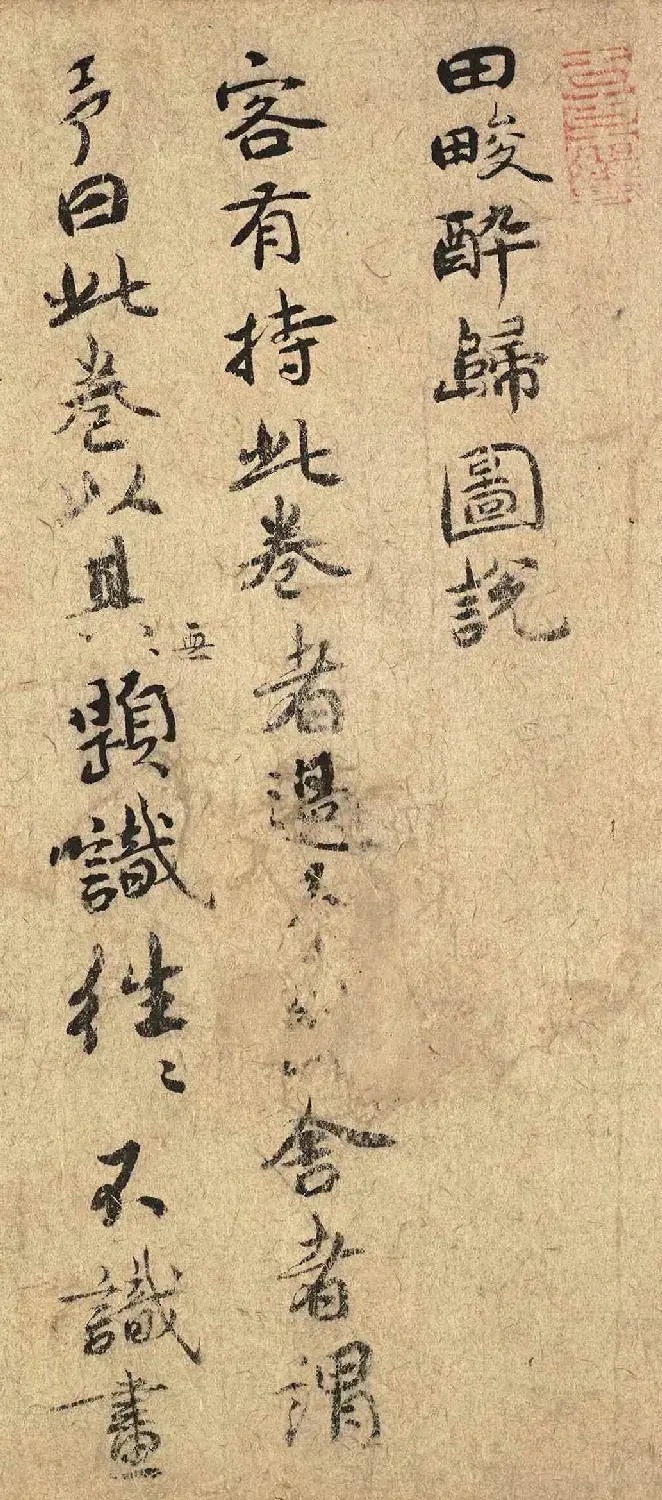 田畯醉歸圖說
客有持此卷者過舍者謂
予曰此卷以其無題識往〻不識畫